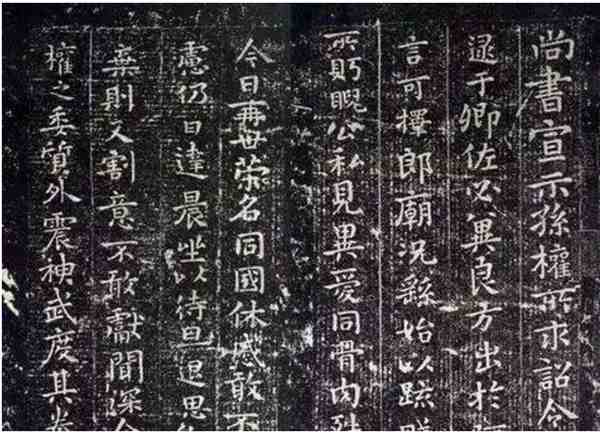 尚書宣示孫權所求詔令
逮于卿佐必冀良方出於
言可擇郎廟況繇始以疏
所眄睨公私見異愛同骨肉殊
今日再世榮名同國休慼敢不
慮仍日達晨坐以待旦退思
棄則又割意不敢獻聞深
權之委質外震神武度其拳